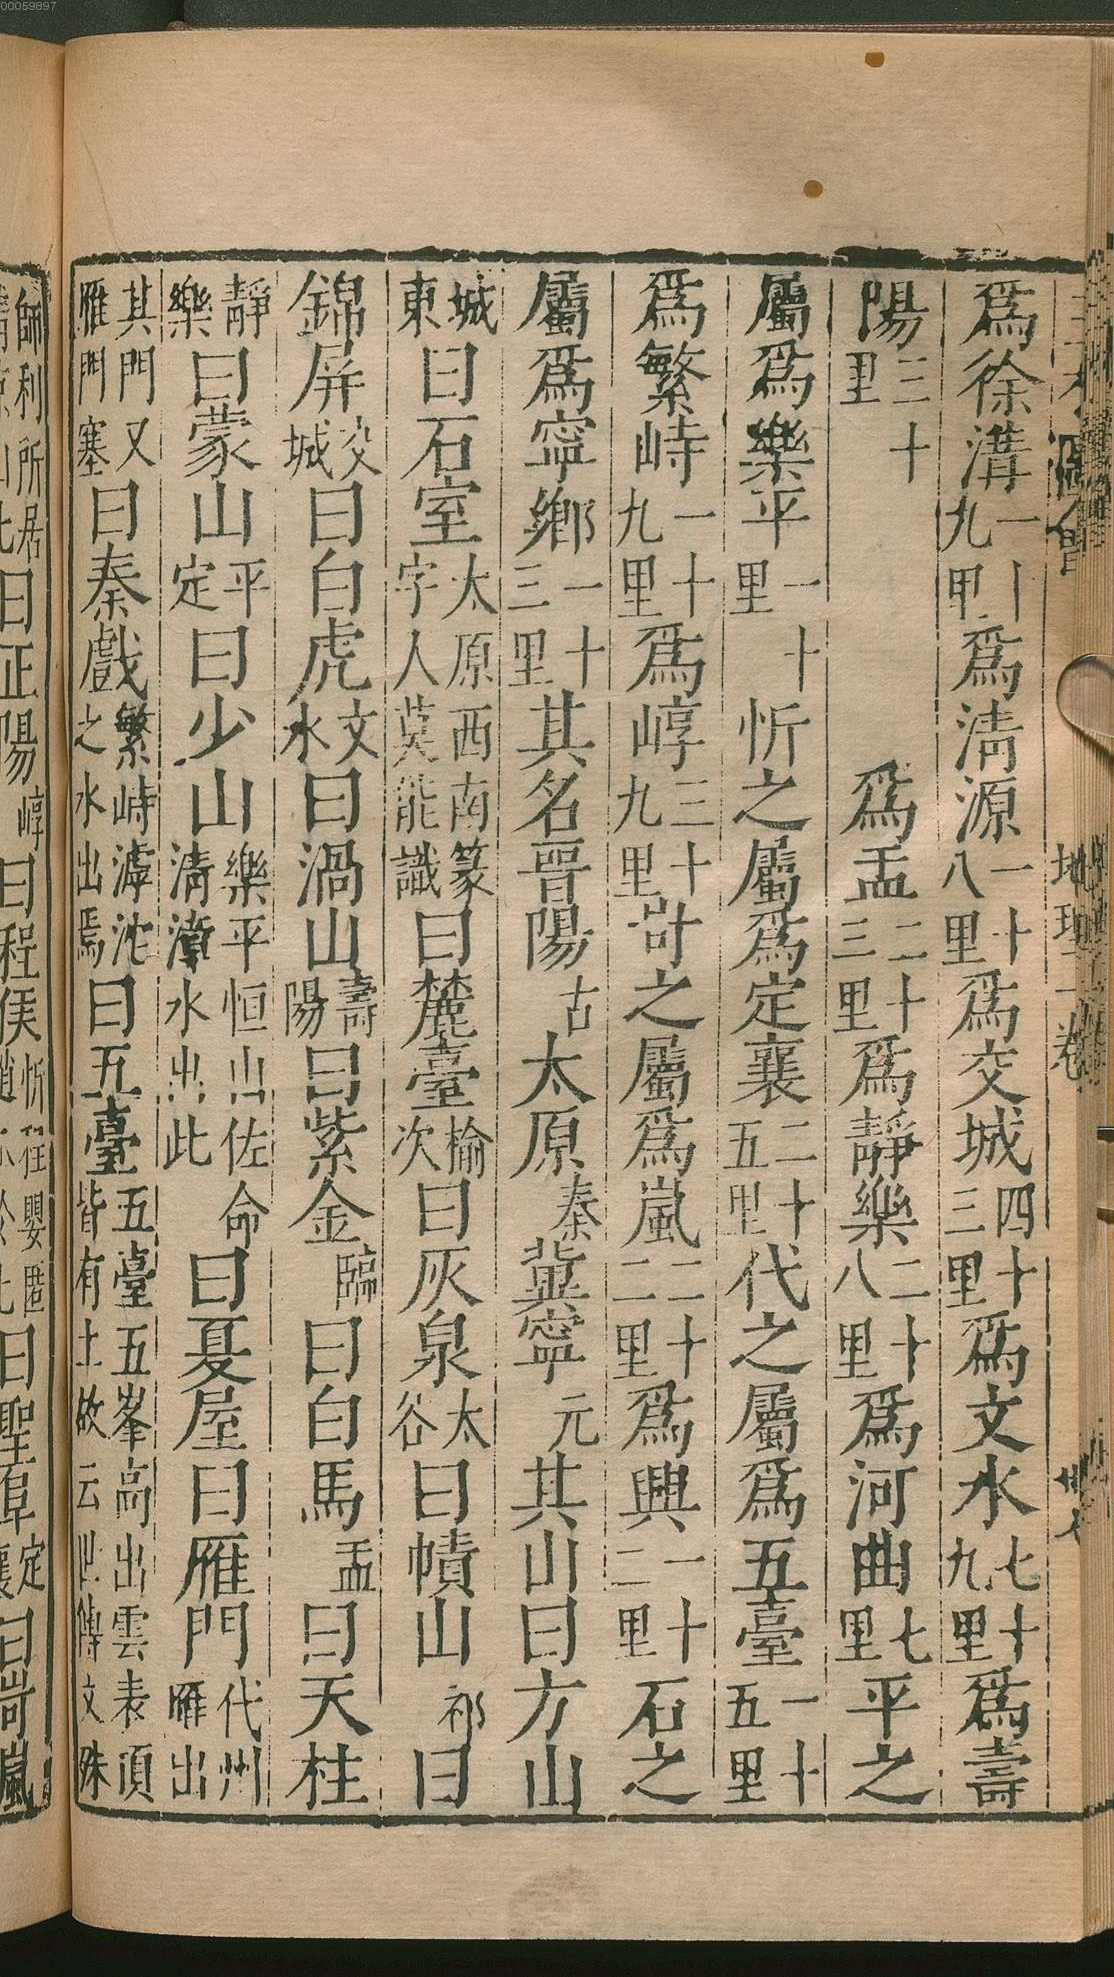 00059897
為徐溝一十九里為清源一十八里為交城四十三里為文水七十九里為壽
陽三十里為盂二十三里為靜樂二十八里為河曲七里平之
屬為樂平一十里忻之屬為定襄二十五里代之屬為五臺一十五里
為繁峙一十九里為崞三十九里岢之屬為嵐二十二里為興一十二里石之
屬為寧鄉一十三里其名晉陽古太原秦冀寧元其山曰方山
城東曰石室太原西南篆字人莫能識曰麓臺榆次曰灰泉太谷曰幘山祁曰
錦屏交城曰白虎文水曰渦山壽陽曰紫金臨曰白馬盂曰天柱
靜樂曰蒙山平定曰少山樂平恒山佐命清漳水出此曰夏屋曰雁門代州雁出
其門又雁門塞曰秦戲繁峙滹沱之水出焉曰五臺五臺五峯高出雲表頂皆有土故云世傳文殊
師利所居曰正陽崞曰程侯忻程嬰匿曰聖阜定襄曰岢嵐